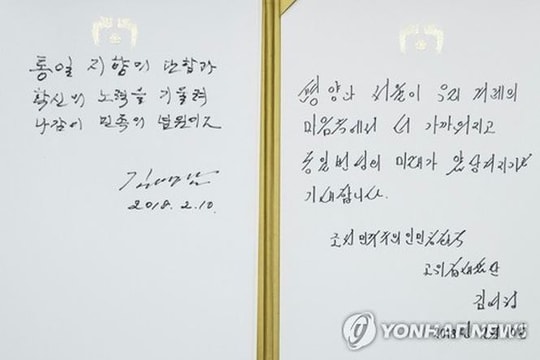 통일 지향의 단합과
확신의 노력을 기울려
나감이 민족의 념원이오
김영남
2018. 2. 10.
평양과 서울이 우리 겨레의
마음속에서 더 가까워지고
통일번영의 미래가 앞당겨지기를
기대합니다.
조선민주주의인민공화국
고위급대표단
김여정
2018년 2월 10일
YONHAP NEWS